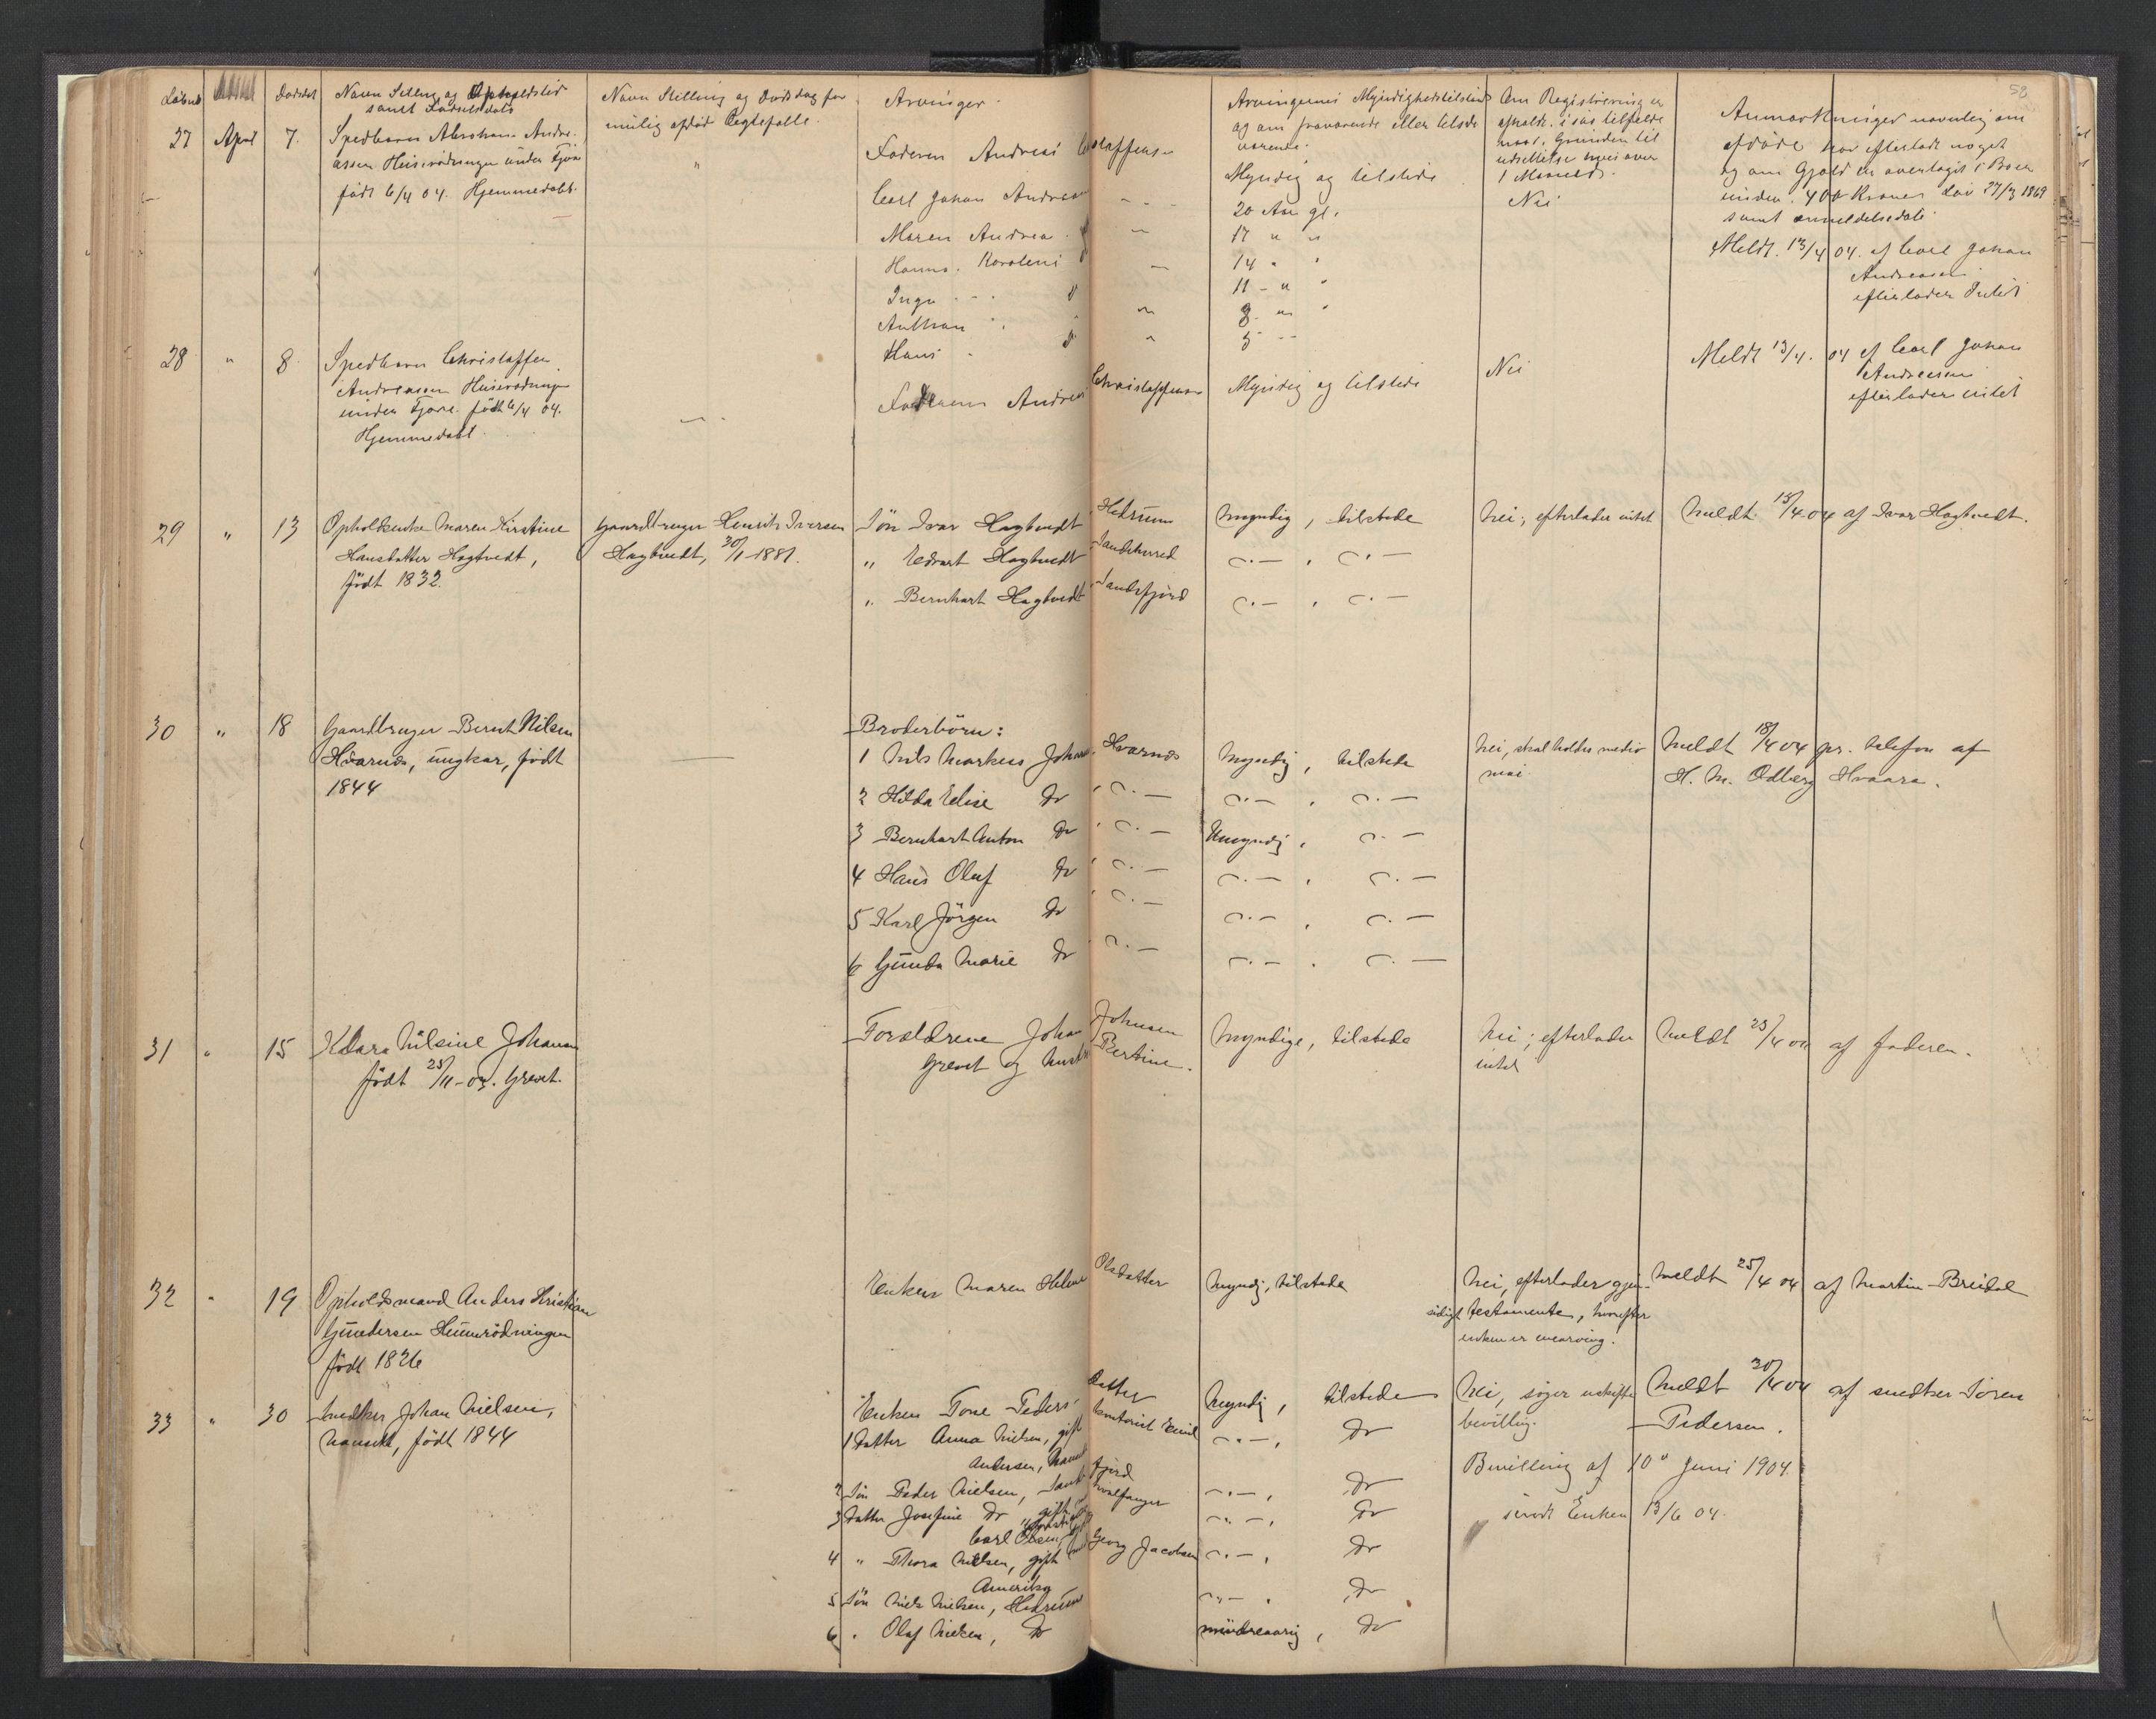 58
Løbnr Dødsdat Navn Stilling og Opholdssted Navn Stilling og Dødsdag for Arvinger. Arvingernes Myndighedstilstand Om Registrering er Anmærkninger navnlig om
samt Fødselsdato mulig afdød Ægtefælle. og om fraværende eller tilstede afholdt. i saa tilfælde afdøde har efterladt noget
værende. naar. Grunden til og om Gjæld er overtaget i Boer
udsættelse mere over under 400 Kroner Lov 27/3 1869
1 Maaned. samt anmeldelsesdato.
27 April 7. Spedbarn Abraham Andre- " Faderen Andreas Christoffersen Myndig og tilstede Nei Meldt 13/4 04. af Carl Johan
assen Huserødningen under Fjære Carl Johan Andreassen - - - 20 Aar gl. Andreassen
født 6/4 04. Hjemmedøbt. Maren Andrea d " 17 " " efterlader Intet
Hanna Karoline d " 14 " "
Inga - - d 11 - " "
Anthon " d " 8 " "
Hans - d " 5 - -
28 " 8 Spedbarn Christoffer Faderen Andreas Christoffersen Myndig og tilstede Nei Meldt 13/4. 04 af Carl Johan
Andreassen Huserødningen Andreassen
under Fjære født 6/4 04. efterlader intet
Hjemmedøbt.
29 " 13 Opholdsenke Maren Kirstine Gaardbruger Henrik Iversen Søn Ivar Hagtvedt Hedrum Myndig, tilstede Nei; efterlader intet Meldt 15/4 04 af Ivar Hagtvedt.
Hansdatter Hagtvedt, Hagtvedt, 30/1 1881. " Edvart Hagtvedt Sandeherred " - , " -
født 1832. " Bernhart Hagtvedt Sandefjord " - , " -
30 " 18 Gaardbruger Bernt Nilsen — Broderbörn:
Hvarnes, ungkar, født 1 Nils Markus Johans. Hvarnes Myndig, tilstede Nei, skal holdes medio Meldt 18/4 04 pr. telefon af
1844 mai H. M. Odberg Hvaara.
2 Hilda Elise do " - " - , " -
3 Bernhart Anton do " - Umyndig, " -
4 Hans Oluf do " - " - , " -
5 Karl Jörgen do " - " - , " -
6 Gunda Marie do " - " - , " -
31 " 15 Klara Nilsine Johansen Forældrene Johan Johnsen Myndige, tilstede Nei; efterlader Meldt 25/4 04 af faderen.
født 25/11-03. Grevet. Grevet og hustru Bertine. intet
32 " 19 Opholdsmand Anders Kristian Enken Maren Helene Olsdatter Myndig, tilstede Nei, efterlader gjen- Meldt 25/4 04 af Martin Breidal
Gundersen Huserödningen sidigt testamente, hvorefter
født 1826 enken er enearving.
33 " 30 Snedker Johan Nielsen, Enken Tone Peders- datter Myndig, tilstede Nei, søger uskifte Meldt 30/4 04 af snedker Sören
Nanset, født 1844 1 Datter Anna Nielsen, gift Kontorist Emil " - , do bevilling. Pedersen.
Andersen, Nanset Bevilling af 10de Juni 1904.
2 Søn Peder Nielsen, Sandefjord " - , do
3 Datter Josefine do gift hvalfanger " - , do sendt Enken 13/6 04.
Carl Olsen,
4 " Thora Nielsen, gift med Georg Jacobsen " - , do
Amerika
5 Søn Niels Nielsen, Hedrum " - , do
6 " Olaf Nielsen, do mindreaarig, do